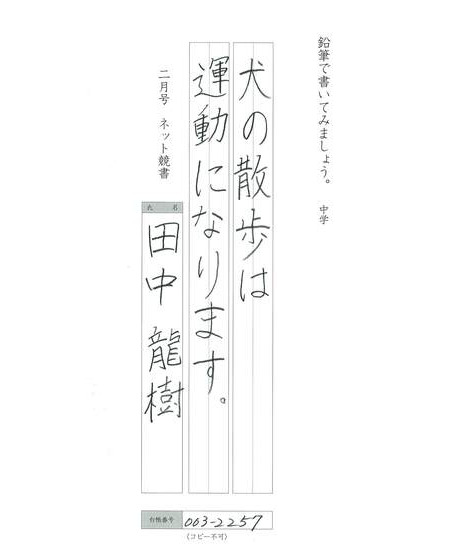 鉛筆で書いてみましょう。 中学
犬の散歩は
運動になります。
二月号 ネット競書
氏 名
田中 龍樹
台帳番号 003-2257
(コピー不可)